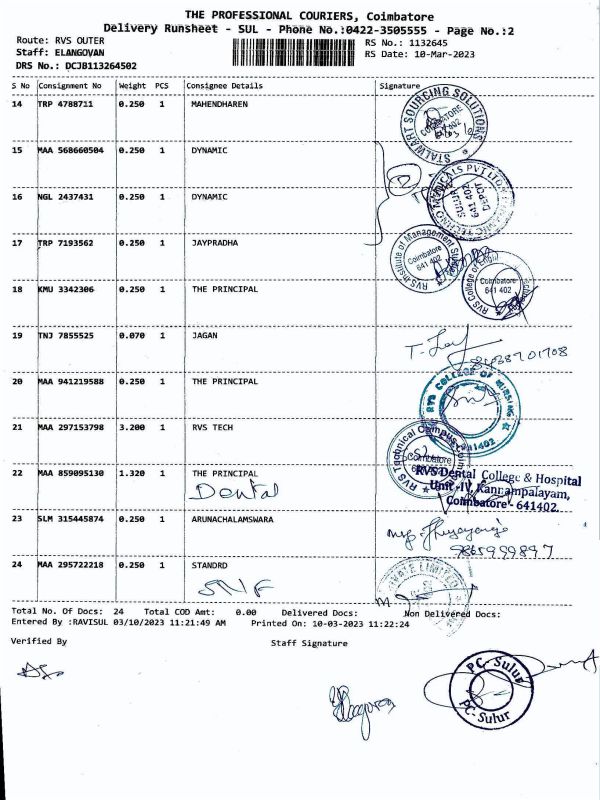 THE PROFESSIONAL COURIERS, Coimbatore
Delivery Runsheet - SUL - Phone No.:0422-3505555 - Page No.:2
Route: RVS OUTER
RS No.: 1132645
Staff: ELANGOVAN
RS Date: 10-Mar-2023
DRS No.: DCJB113264502
S No Consignment No Weight PCS Consignee Details Signature
14 TRP 4788711 0.250 1 MAHENDHAREN
STALWART SOURCING SOLUTIONS
COIMBATORE
15 MAA 568660504 0.250 1 DYNAMIC
16 NGL 2437431 0.250 1 DYNAMIC
SULUR
DEPOT
641 402
17 TRP 7193562 0.250 1 JAYPRADHA
RVS Institute of Management Studies
Coimbatore
641 402
18 KMU 3342306 0.250 1 THE PRINCIPAL
RVS College of
Coimbatore
641 402
19 TNJ 7855525 0.070 1 JAGAN
20 MAA 941219588 0.250 1 THE PRINCIPAL
RVS COLLEGE OF NURSING
641402
21 MAA 297153798 3.200 1 RVS TECH
RVS Technical Campus
Coimbatore
22 MAA 859095130 1.320 1 THE PRINCIPAL
Dental
RVS Dental College & Hospital
Unit-IV, Kannampalayam,
Coimbatore - 641402.
23 SLM 315445874 0.250 1 ARUNACHALAMSWARA
9865999897
24 MAA 295722218 0.250 1 STANDRD
PRIVATE LIMITED
Total No. Of Docs: 24 Total COD Amt: 0.00 Delivered Docs: Non Delivered Docs:
Entered By :RAVISUL 03/10/2023 11:21:49 AM Printed On: 10-03-2023 11:22:24
Verified By Staff Signature
PC- Sulur
PC- Sulur